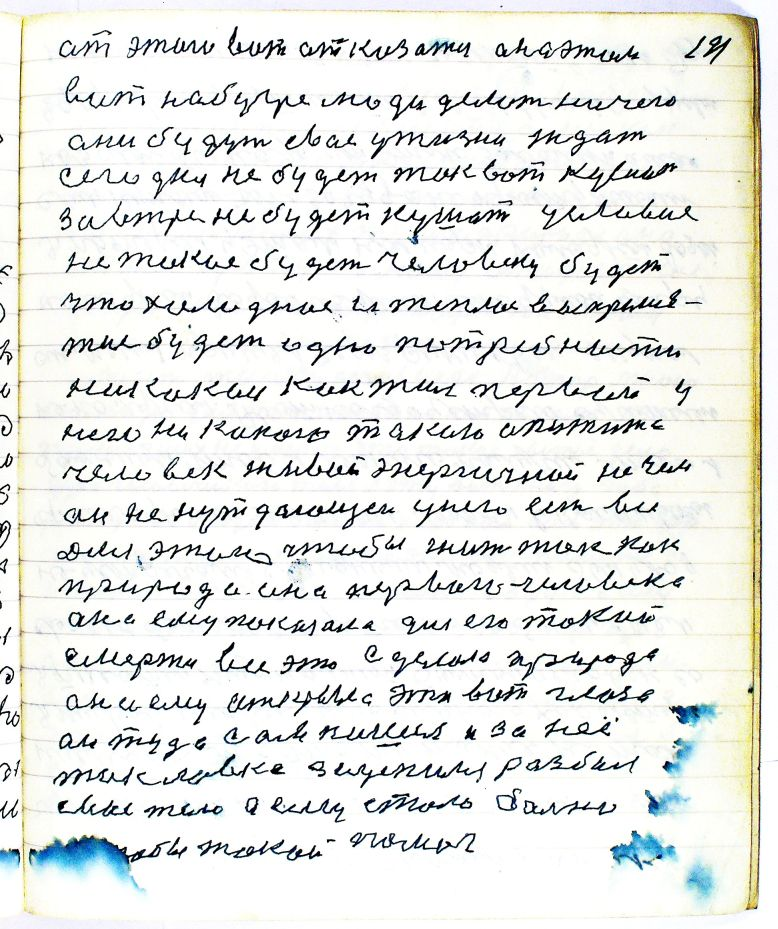 191
ат этого вот атказати она этом
вит на бугре люди делат ничего
ани будут свае у жизни ждат
сегодня не будет так вот кушат
завтре не будет кушат условие
не такое будет человеку будет
что халодное и теплое васприя-
тие будет одно потребности
никакои как жил первый у
него никакого такого апыта не
человек живой энергичной не чем
ан не нуждающей у него ест все
для этого чтобы жит так как
природа она первого человека
ана ему показала для его такий
смерти все это сделала природа
ана ему аткрыла эти вот глаза
ан туда сам кинился и за неё
так ловка зацепился разбил
свае тело а ему стало болно
такой помог